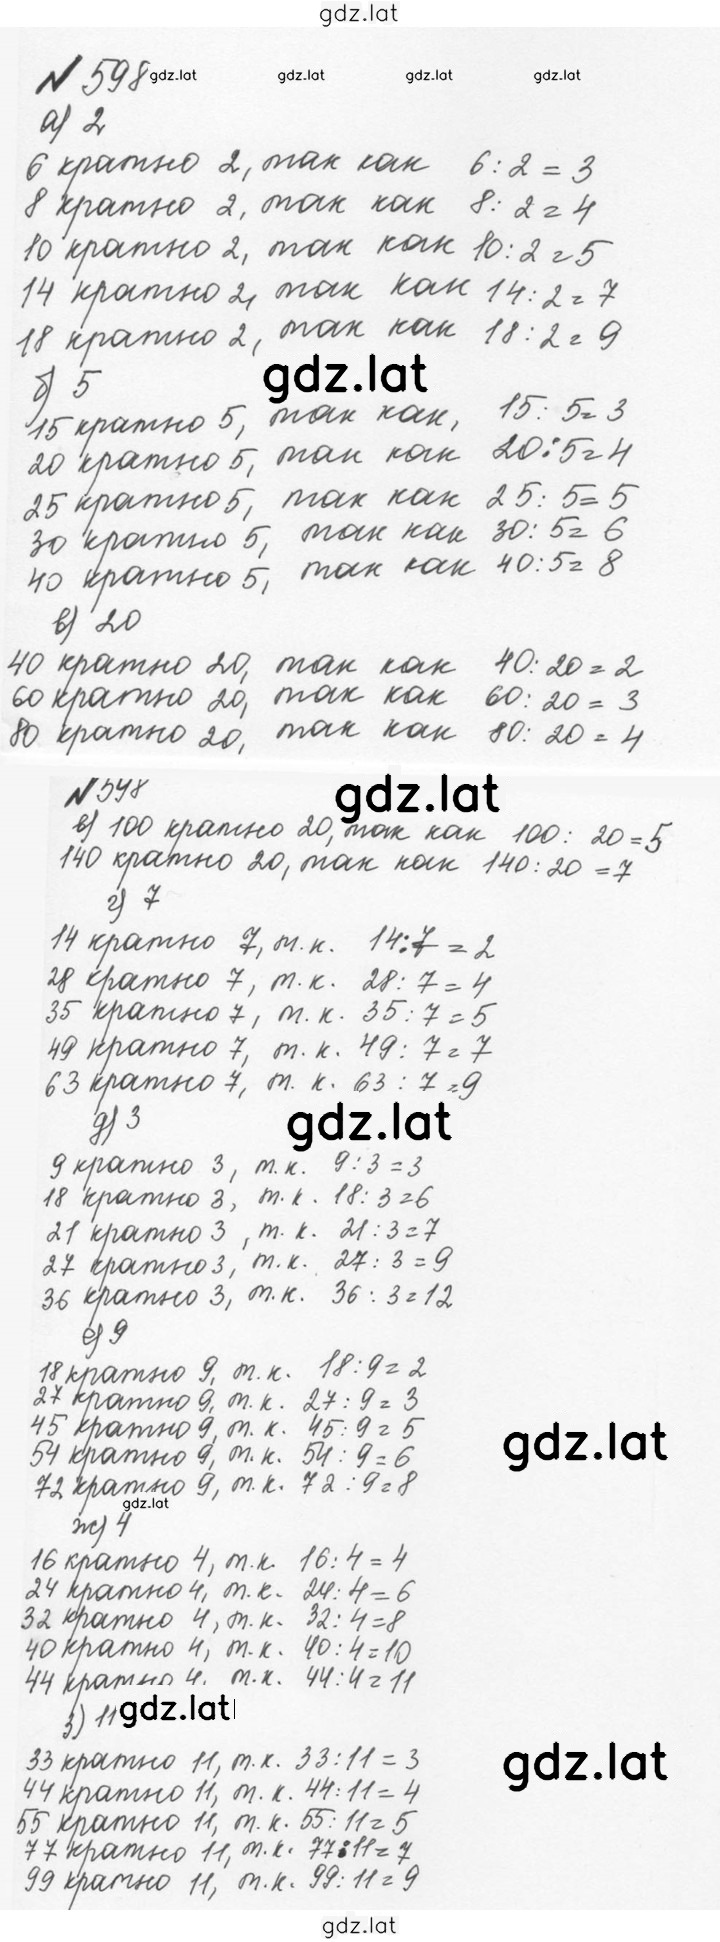 gdz.lat
№ 598 gdz.lat gdz.lat gdz.lat gdz.lat
а) 2
6 кратно 2, так как 6:2=3
8 кратно 2, так как 8:2=4
10 кратно 2, так как 10:2=5
14 кратно 2, так как 14:2=7
18 кратно 2, так как 18:2=9
б) 5 gdz.lat
15 кратно 5, так как, 15:5=3
20 кратно 5, так как 20:5=4
25 кратно 5, так как 25:5=5
30 кратно 5, так как 30:5=6
40 кратно 5, так как 40:5=8
в) 20
40 кратно 20, так как 40:20=2
60 кратно 20, так как 60:20=3
80 кратно 20, так как 80:20=4
№598 gdz.lat
в) 100 кратно 20, так как 100:20=5
140 кратно 20, так как 140:20=7
г) 7
14 кратно 7, т.к. 14:7=2
28 кратно 7, т.к. 28:7=4
35 кратно 7, т.к. 35:7=5
49 кратно 7, т.к. 49:7=7
63 кратно 7, т.к. 63:7=9
д) 3 gdz.lat
9 кратно 3, т.к. 9:3=3
18 кратно 3, т.к. 18:3=6
21 кратно 3, т.к. 21:3=7
27 кратно 3, т.к. 27:3=9
36 кратно 3, т.к. 36:3=12
е) 9
18 кратно 9, т.к. 18:9=2
27 кратно 9, т.к. 27:9=3
45 кратно 9, т.к. 45:9=5
54 кратно 9, т.к. 54:9=6
gdz.lat
72 кратно 9, т.к. 72:9=8
gdz.lat
ж) 4
16 кратно 4, т.к. 16:4=4
24 кратно 4, т.к. 24:4=6
32 кратно 4, т.к. 32:4=8
40 кратно 4, т.к. 40:4=10
44 кратно 4, т.к. 44:4=11
з) 11 gdz.lat
33 кратно 11, т.к. 33:11=3
gdz.lat
44 кратно 11, т.к. 44:11=4
55 кратно 11, т.к. 55:11=5
77 кратно 11, т.к. 77:11=7
99 кратно 11, т.к. 99:11=9
gdz.lat